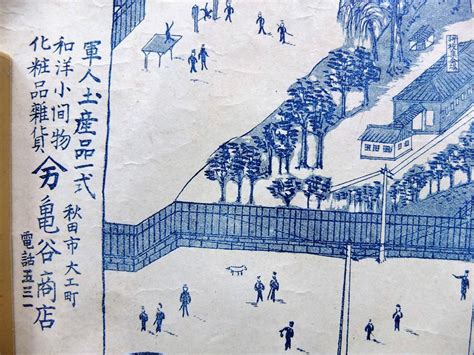 軍人土産品一式
和洋小间物
化粧品雑貨
万 亀谷商店
秋田市大工町
電話五三一